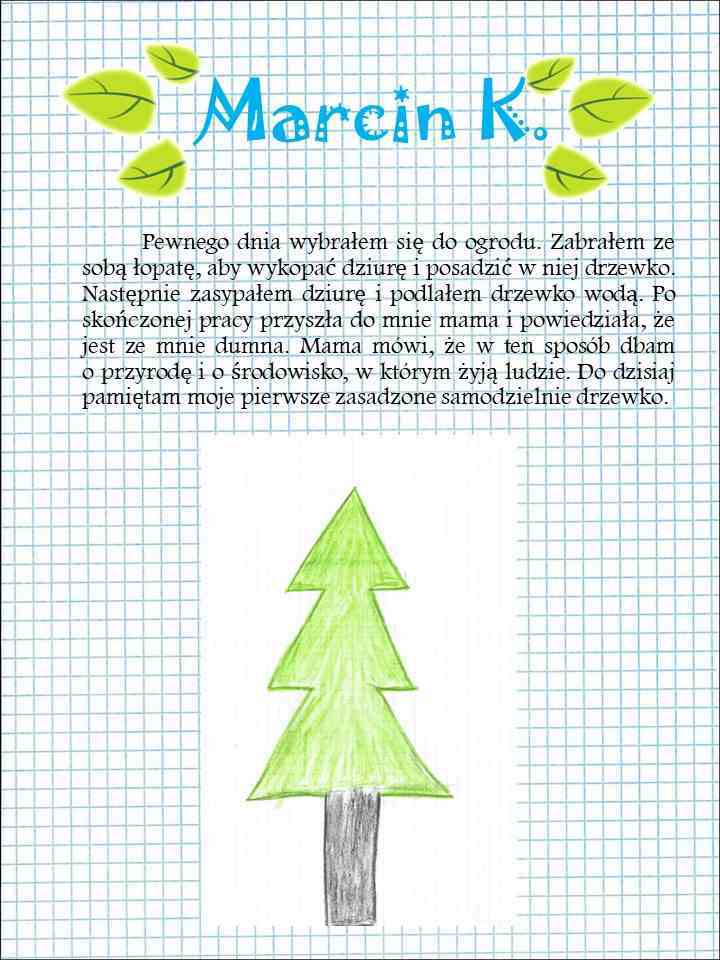 Marcin K.
Pewnego dnia wybrałem się do ogrodu. Zabrałem ze
sobą łopatę, aby wykopać dziurę i posadzić w niej drzewko.
Następnie zasypałem dziurę i podlałem drzewko wodą. Po
skończonej pracy przyszła do mnie mama i powiedziała, że
jest ze mnie dumna. Mama mówi, że w ten sposób dbam
o przyrodę i o środowisko, w którym żyją ludzie. Do dzisiaj
pamiętam moje pierwsze zasadzone samodzielnie drzewko.